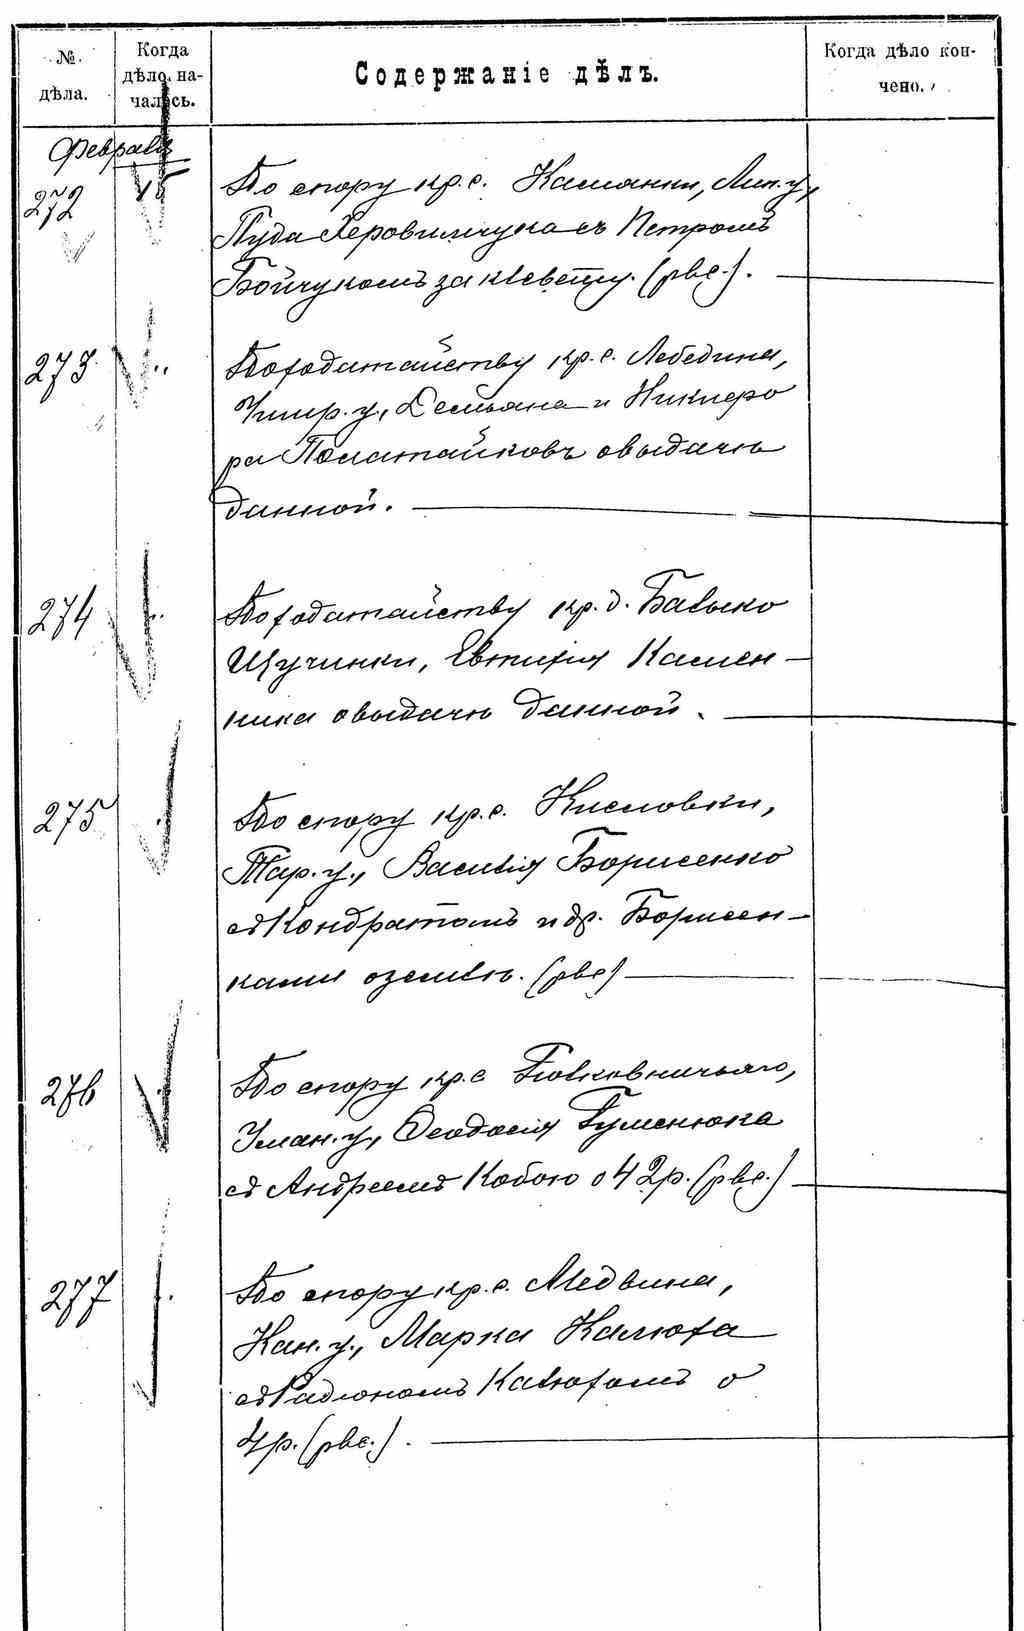 № дѣла.
Когда дѣло началось.
Содержаніе дѣлъ.
Когда дѣло кончено.
Февраля
272 15 По спору кр. с. Каменки, Лип. у,
Пуда Херовимчука съ Петромъ
Бойчукомъ за клевету. (рвс.).
273 " По ходатайству кр. с. Лебедина,
Чигир. у., Демьяна и Никифо
ра Палатайковъ о выдачѣ
данной.
274 " По ходатайству кр. д. Байыко
Щучинки, Евтихія Камен-
ника о выдачѣ данной.
275 " По спору кр. с. Кисловки,
Тар. у., Василія Борисенко
съ Кондратомъ и др. Борисен-
ками о землѣ. (рвс)
276 " По спору кр. с Полковничьяго,
Уман. у, Ѳеодосія Гуменюка
съ Андреемъ Кобою о 42р. (рвс.)
277 " По спору кр. с. Медвина,
Кан. у., Марка Калюха
съ Радіономъ Калюхомъ о
4р. (рвс.).